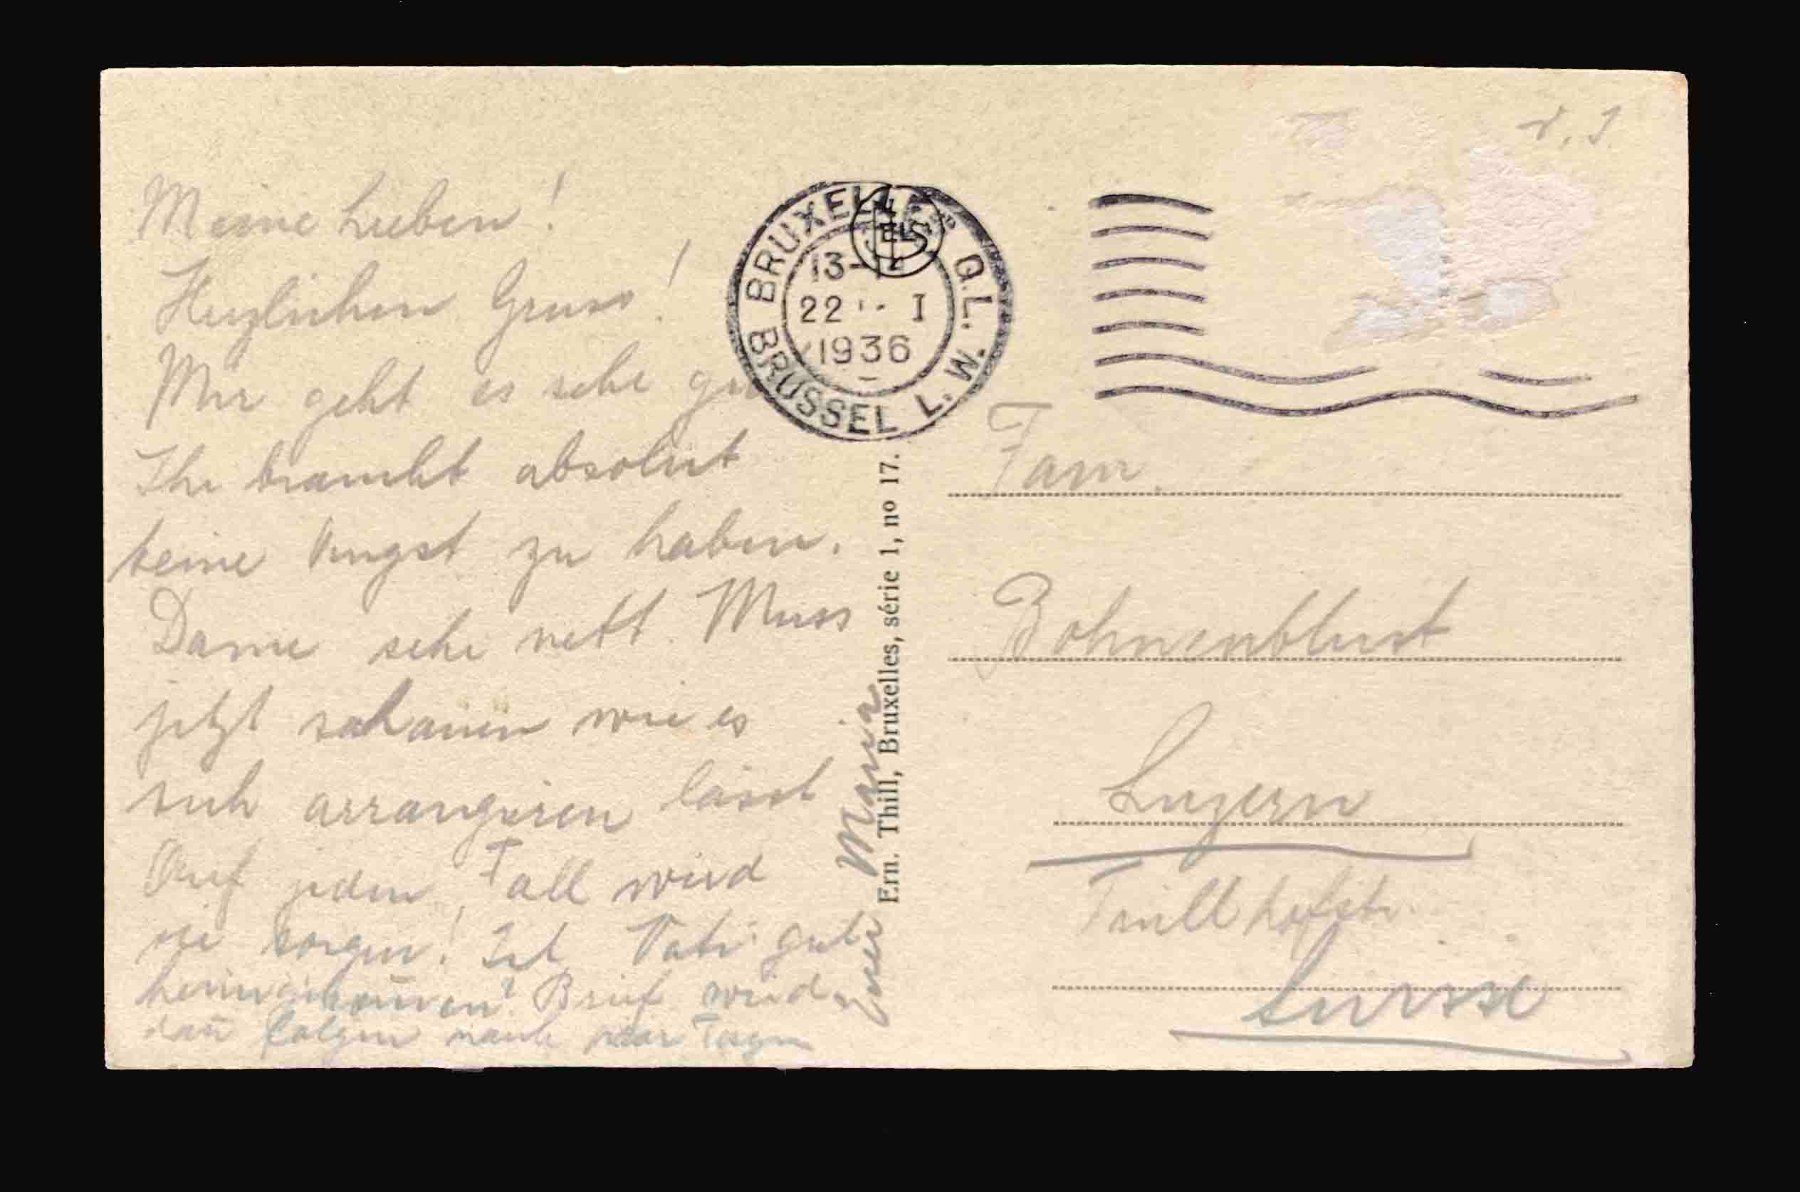 Meine Lieben!
Herzlichen Gruss!
Mir geht es sehr gut
Ihr braucht absolut
keine Angst zu haben.
Dame sehr nett. Muss
jetzt schauen wie es
sich arrangieren lässt
Auf jeden Fall wird
sie sorgen! Ist Vati gut
heimgekommen? Brief wird
dañ folgen nach paar Tagen
Maria
BRUXELLES Q.L.
BRUSSEL L.W.
13-14
22 I
1936
ELS
Ern. Thill, Bruxelles, série 1, no 17.
Fam.
Bohnenblust
Luzern
Trüllhofstr.
Suisse